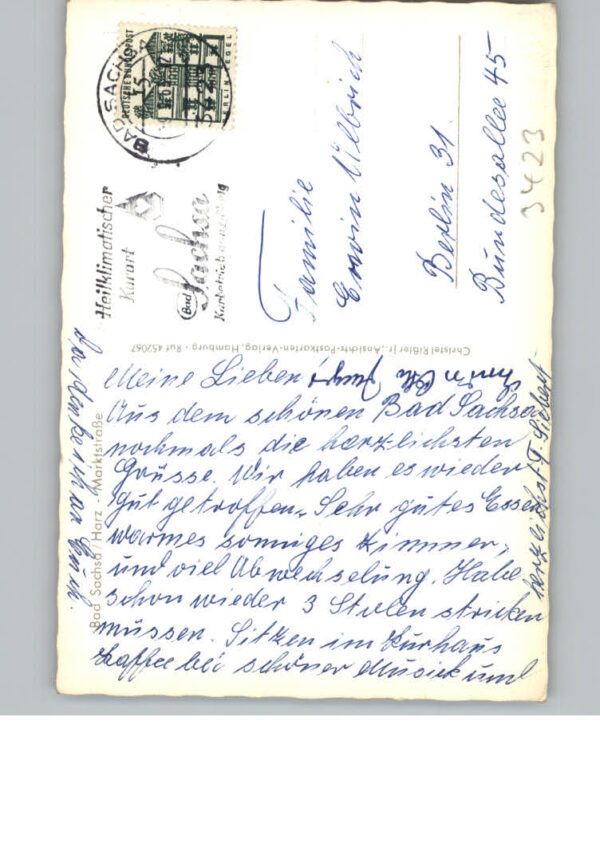 BAD SACHSA
DEUTSCHE BUNDESPOST
BERLIN TEGEL
Heilklimatischer
Kurort
Bad Sachsa
Familie
Erwin Ulbrich
Berlin 31
Bundesallee 45
3423
Christel Rißler jr., Ansichts-Postkarten-Verlag, Hamburg · Ruf 452067
Meine Lieben
Aus dem schönen Bad Sachsa
nochmals die herzlichsten
Grüsse. Wir haben es wieder
gut getroffen. Sehr gutes Essen
warmes sonniges Zimmer,
und viel Abwechselung. Habe
schon wieder 3 Stolen stricken
müssen. Sitzen im Kurhaus
Kaffee bei schöner Musick und
Bad Sachsa/Harz - Marktstraße